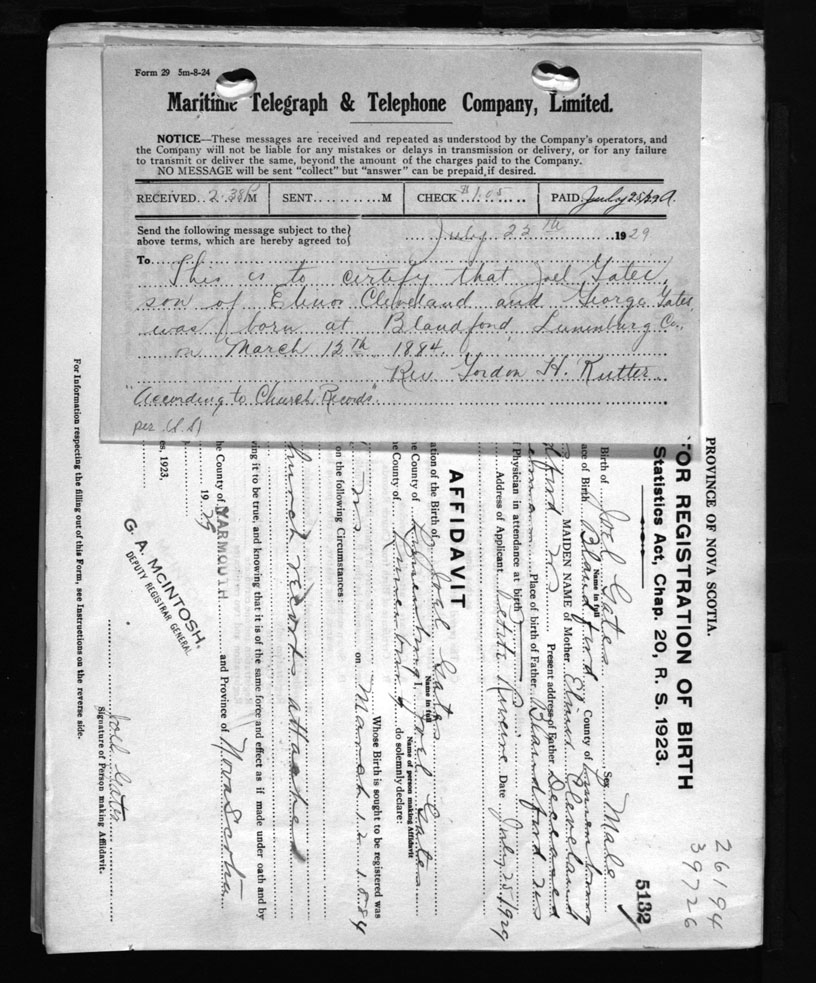 Form 29 5m-8-24
Maritime Telegraph & Telephone Company, Limited.
NOTICE—These messages are received and repeated as understood by the Company's operators, and
the Company will not be liable for any mistakes or delays in transmission or delivery, or for any failure
to transmit or deliver the same, beyond the amount of the charges paid to the Company.
NO MESSAGE will be sent "collect" but "answer" can be prepaid, if desired.
RECEIVED..2.38P M SENT............M CHECK $1.05 PAID July 25/29
Send the following message subject to the
above terms, which are hereby agreed to
July 25th 1929
To
This is to certify that Joel Gates,
son of Elinor Cleveland and George Gates,
was born at Blandford, Lunenburg Co.,
on March 12th 1884.
Rev Gordon H. Rutter
"According to Church Records".
PROVINCE OF NOVA SCOTIA.
FOR REGISTRATION OF BIRTH
Statistics Act, Chap. 20, R. S. 1923.
26194
39726
5132
Birth of Joel Gates Sex Male
Name in full
ace of Birth Blandford County of Lunenburg
MAIDEN NAME of Mother Elinor Cleveland
dford NS Present address of Father Deceased
Place of birth of Father Blandford NS
Physician in attendance at birth
Address of Applicant Petite Riviere Date July 25, 1929
AFFIDAVIT
ation of the Birth of Joel Gates
Name in full
he County of Lunenburg I, Joel Gates
Name of person making Affidavit
he County of Lunenburg do solemnly declare:
Whose Birth is sought to be registered was
NS on March 12 1884
on the following Circumstances:
Church records attached
ving it to be true, and knowing that it is of the same force and effect as if made under oath and by
he County of YARMOUTH and Province of Nova Scotia
1929
G. A. McINTOSH,
DEPUTY REGISTRAR GENERAL
es, 1923.
Joel Gates
Signature of Person making Affidavit.
For Information respecting the filling out of this Form, see Instructions on the reverse side.